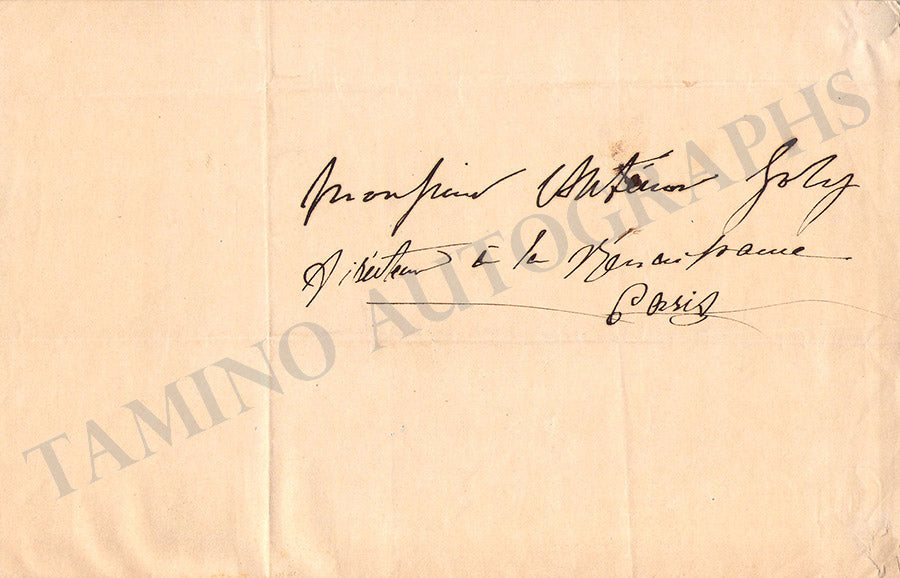 Monsieur Anténor Joly
Directeur à la Renaissance
Paris
TAMINO AUTOGRAPHS